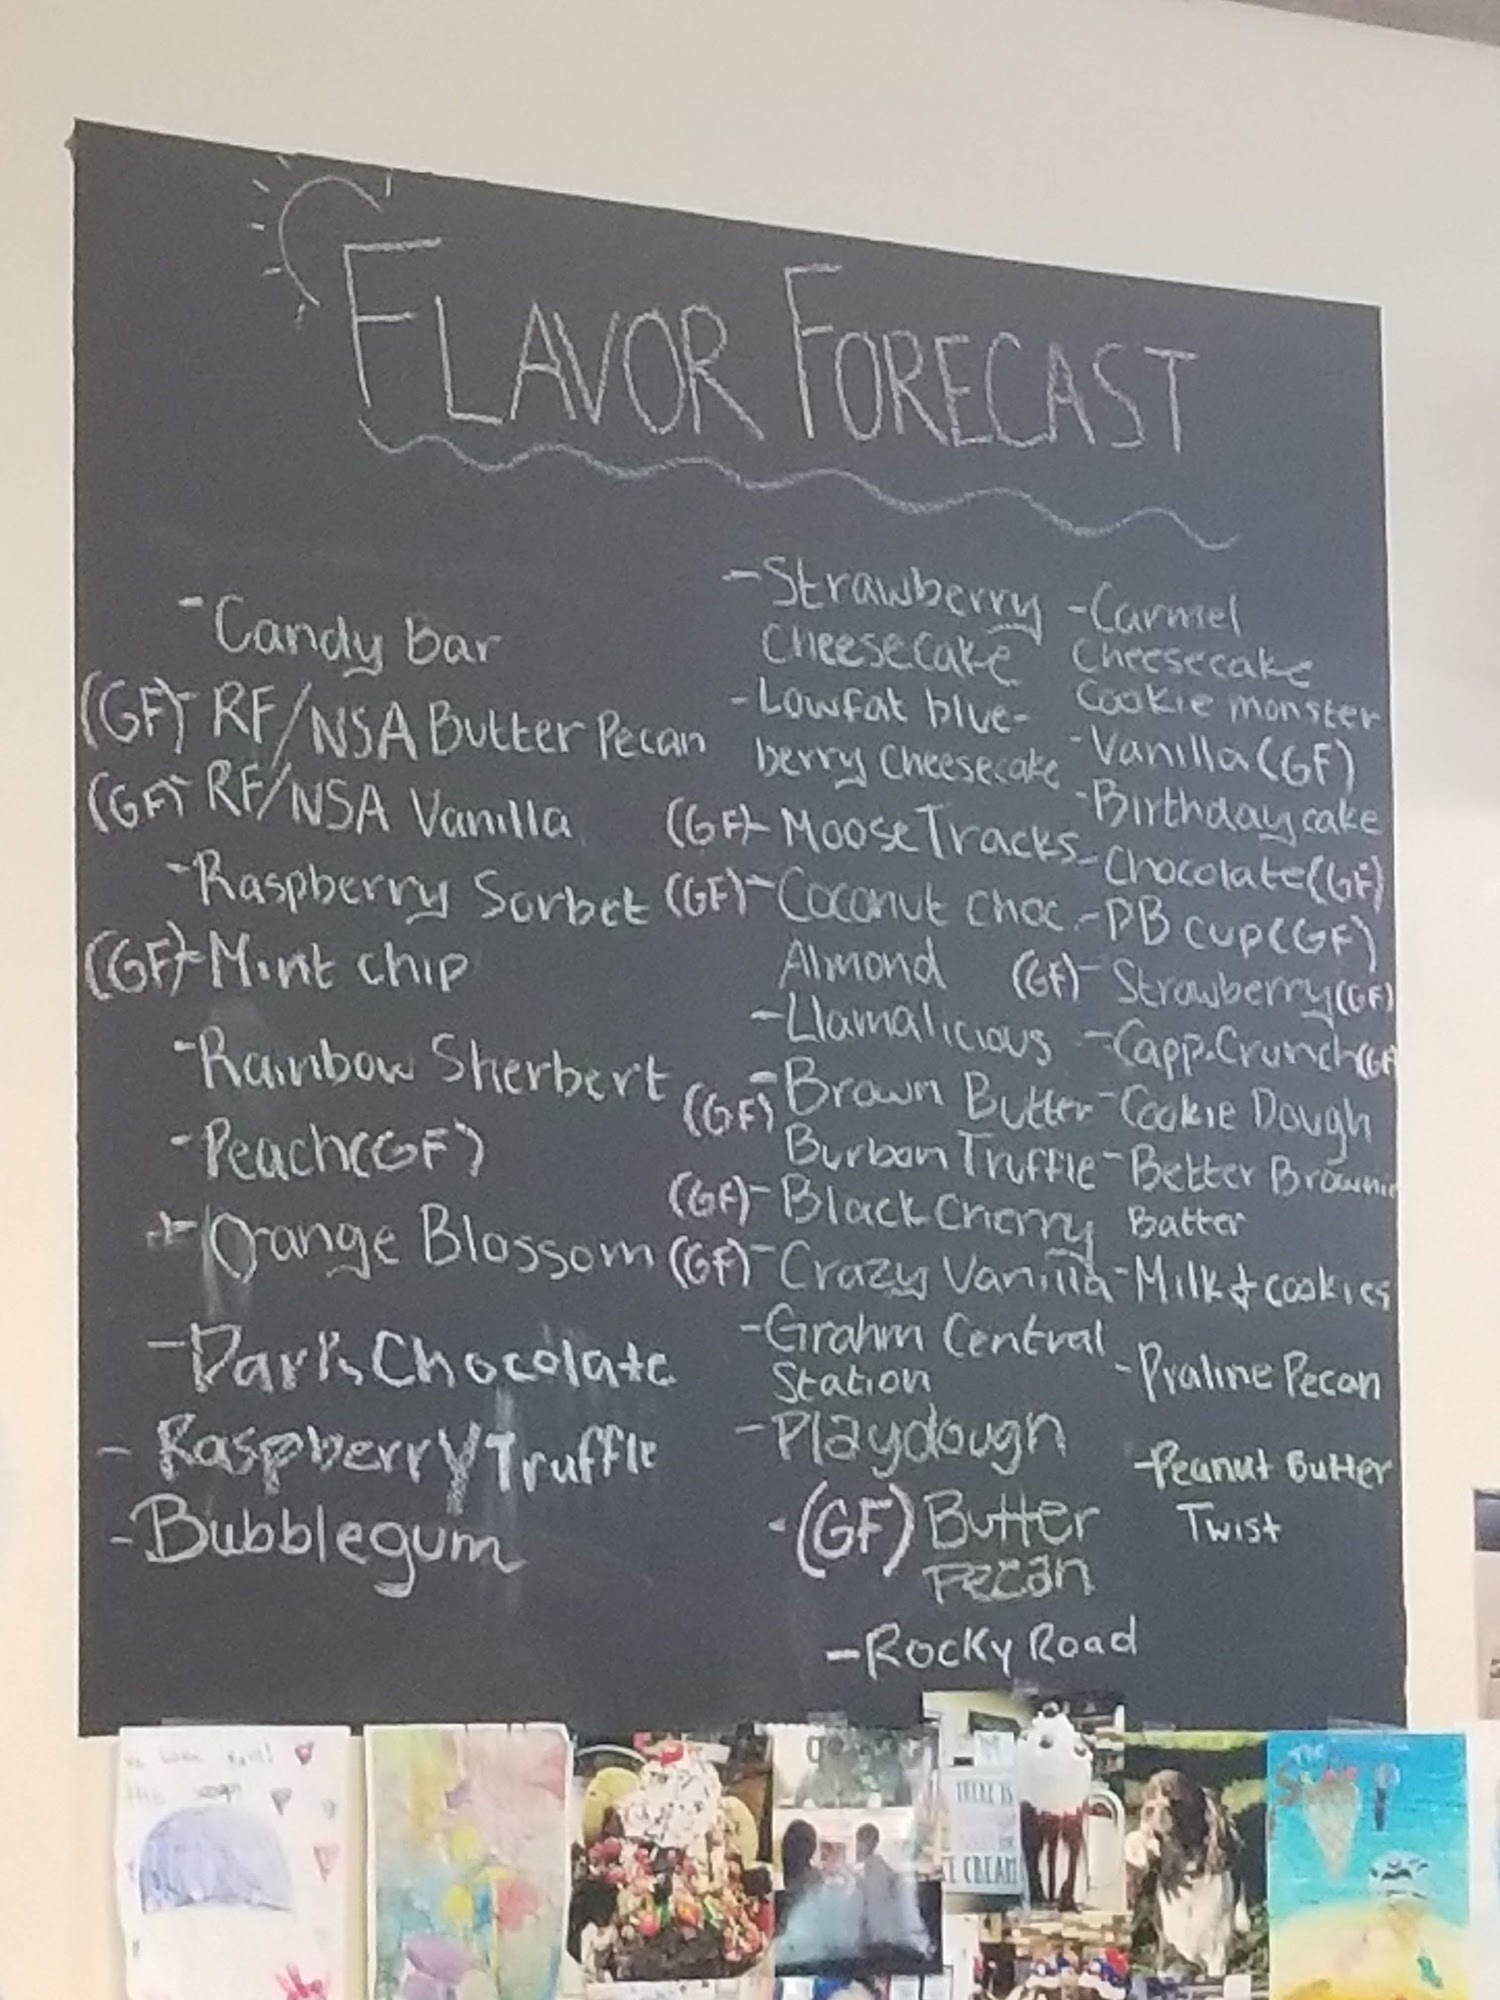 FLAVOR FORECAST
- Candy bar
(GF)- RF/NSA Butter Pecan
(GF)- RF/NSA Vanilla
- Raspberry Sorbet
(GF)- Mint chip
- Rainbow Sherbert
- Peach(GF)
- Orange Blossom
- Dark Chocolate
- Raspberry Truffle
- Bubblegum
- Strawberry
Cheesecake
- Lowfat blue-
berry Cheesecake
(GF)- Moose Tracks
(GF)- Coconut choc.
Almond
- Llamalicious
(GF) - Brown Butter
Burbon Truffle
(GF)- Black Cherry
(GF)- Crazy Vanilla
- Grahm Central
Station
- Playdough
- (GF) Butter
Pecan
- Rocky Road
- Carmel
Cheesecake
Cookie monster
- Vanilla (GF)
- Birthday cake
- Chocolate (GF)
- PB cup (GF)
(GF)- Strawberry (GF)
- Capp. Crunch (GF
- Cookie Dough
- Better Brownie
Batter
- Milk & cookies
- Praline Pecan
- Peanut Butter
Twist
THERE IS
ICE CREAM
THE